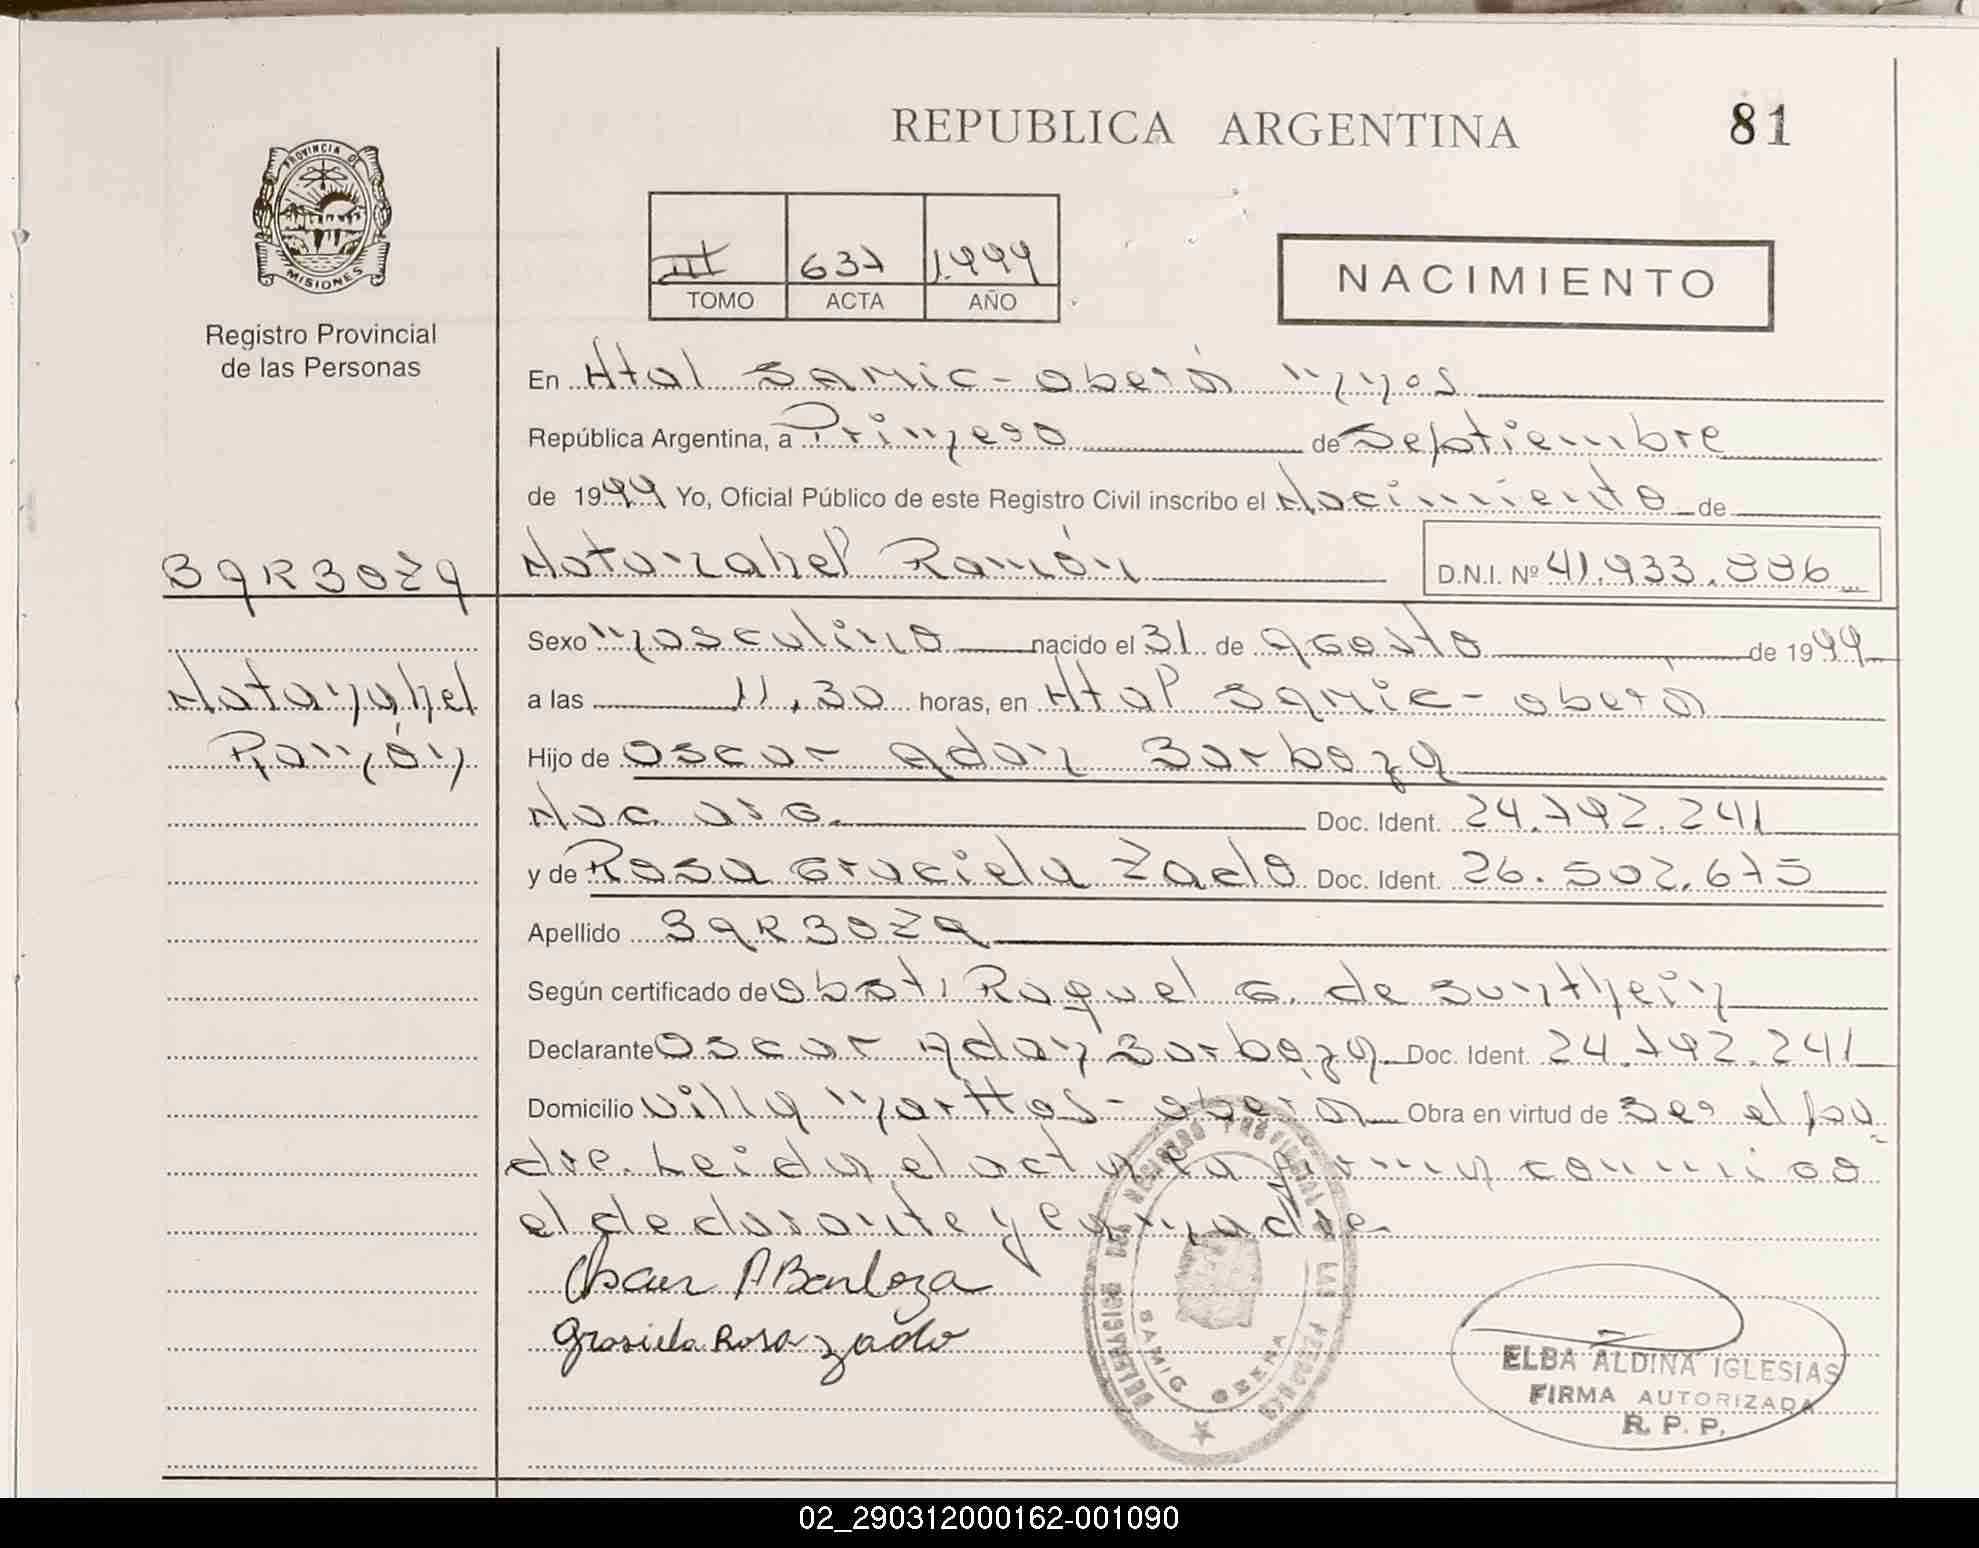 REPUBLICA ARGENTINA
81
PROVINCIA DE
MISIONES
Registro Provincial
de las Personas
III 637 1.999
TOMO ACTA AÑO
NACIMIENTO
En Htal SAMIC - Oberá Mnes
República Argentina, a Primero de Septiembre
de 1999 Yo, Oficial Público de este Registro Civil inscribo el Nacimiento de
BARBOZA
Ramón
D.N.I. Nº 41.933.886
Sexo Masculino nacido el 31 de Agosto de 1999
Ramón
a las 11,30 horas, en Htal SAMIC - Oberá
Hijo de Oscar Adan Barboza
Nac. arG. Doc. Ident. 24.792.241
y de Rosa Graciela Zado Doc. Ident. 26.502.675
Apellido BARBOZA
Según certificado de Obst, Raquel G. de
Declarante Oscar Adan Barboza Doc. Ident. 24.792.241
Domicilio Villa - Oberá Obra en virtud de ser el pa-
dre. Leida el acta la firma conmigo
el declarante y la madre.
Oscar A Barboza
Grasiela Rosa zado
DELEGACION DEL REGISTRO PROVINCIAL DE LAS PERSONAS
SAMIC
ELBA ALDINA IGLESIAS
FIRMA AUTORIZADA
R. P. P.
02_290312000162-001090